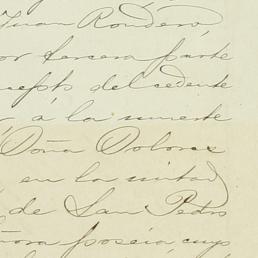 Juan Rondero,
or tercera parte
cepto del cedente
r á la muerte
Doña Dolores
en la mitad
de San Pedro
ñora poseia, cuyo